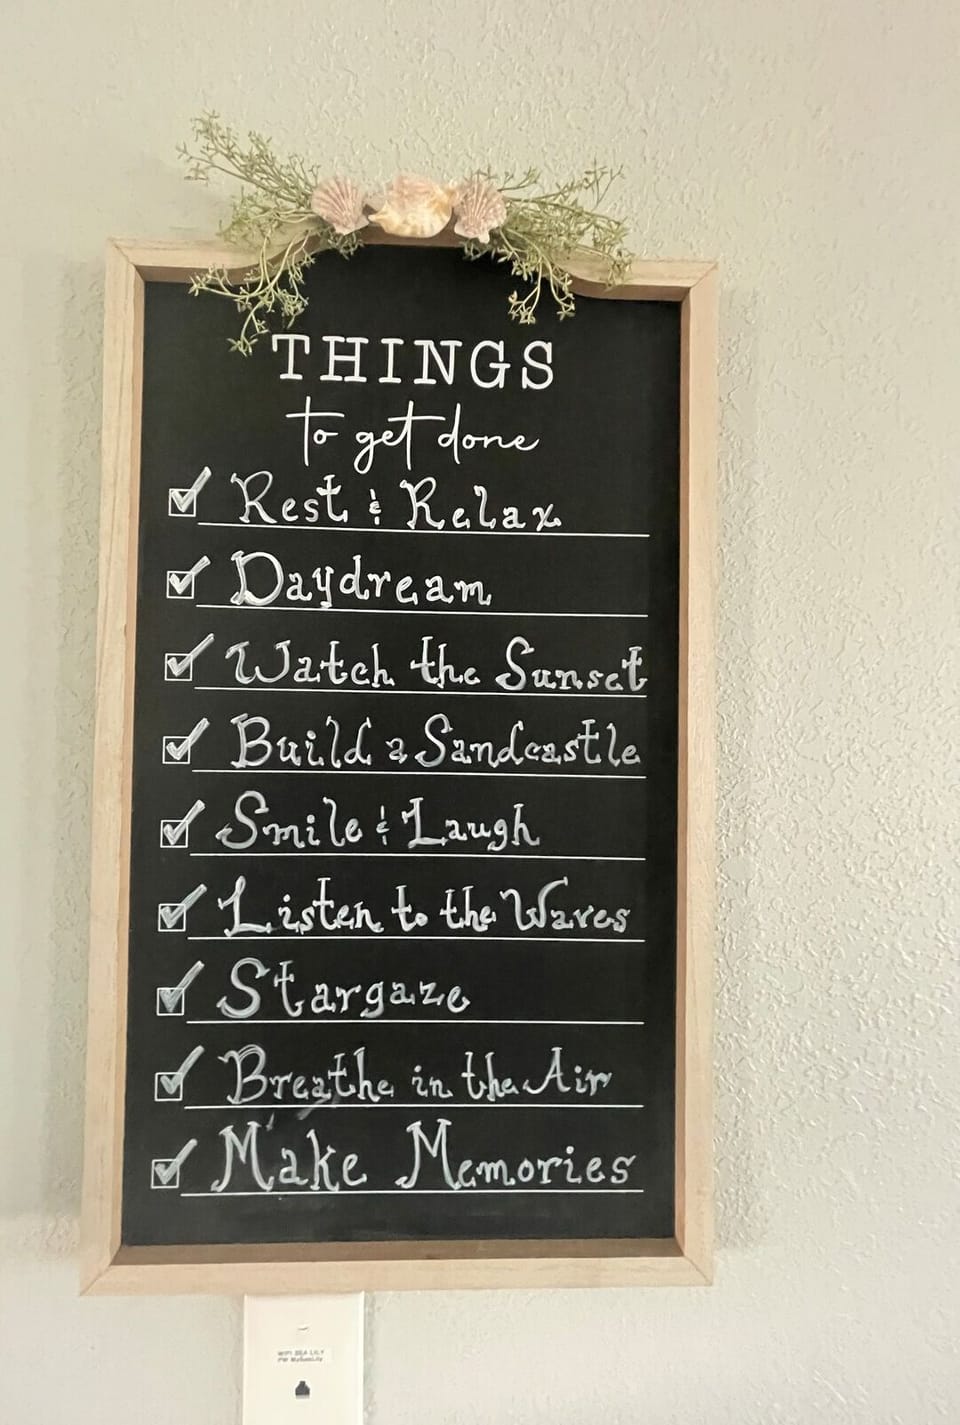 THINGS
to get done
Rest & Relax
Daydream
Watch the Sunset
Build a Sandcastle
Smile & Laugh
Listen to the Waves
Stargaze
Breathe in the Air
Make Memories
WIFI SEA LILY
PW